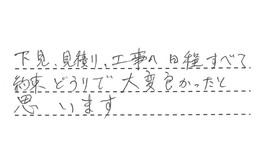 下見、見積り、工事の日程すべて
約束どうりで大変良かったと
思います